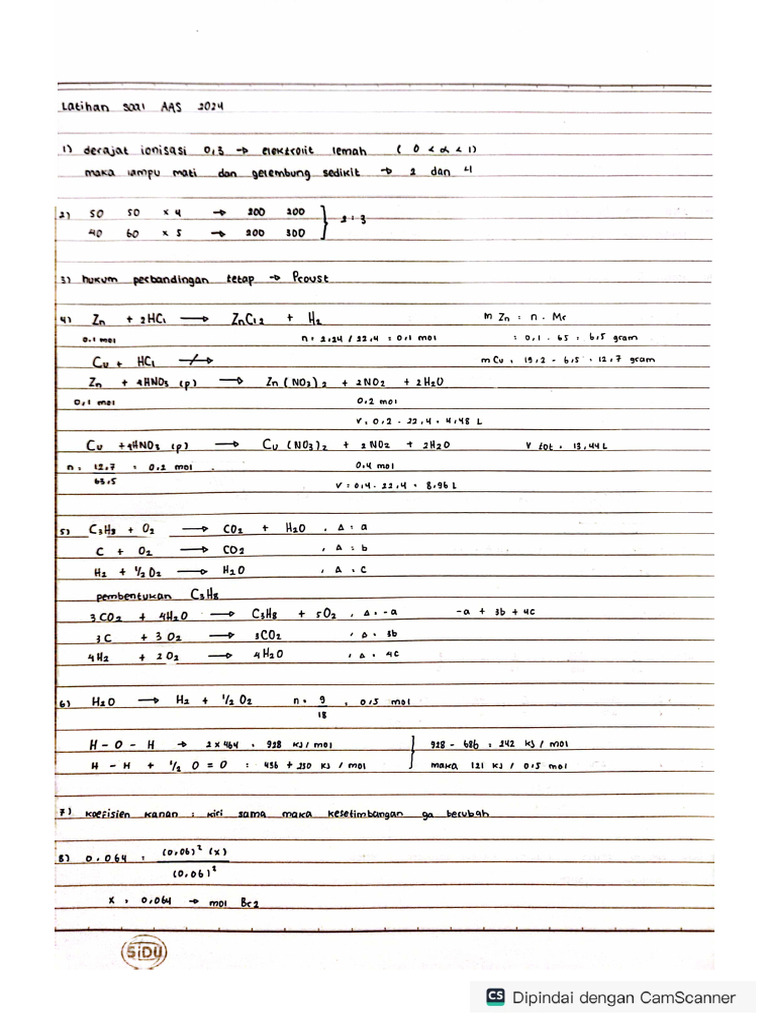 Latihan soal AAS 2024
1) derajat ionisasi 0,3 → elektrolit lemah ( 0 < α < 1)
maka lampu mati dan gelembung sedikit → 2 dan 4
2) 50 50 x 4 → 200 200 } 2 : 3
40 60 x 5 → 200 300
3) hukum perbandingan tetap → Proust
4) Zn + 2HCl → ZnCl2 + H2 m Zn = n . Mr
0.1 mol n = 2,24 / 22,4 = 0,1 mol = 0,1 . 65 = 6,5 gram
Cu + HCl ↛ m Cu = 19,2 - 6,5 = 12,7 gram
Zn + 4HNO3 (p) → Zn(NO3)2 + 2NO2 + 2H2O
0,1 mol 0,2 mol
V = 0,2 . 22,4 = 4,48 L
Cu + 4HNO3 (p) → Cu(NO3)2 + 2NO2 + 2H2O V tot = 13,44 L
n = 12,7 / 63,5 = 0,2 mol 0,4 mol
V = 0,4 . 22,4 = 8,96 L
5) C3H8 + O2 → CO2 + H2O , Δ = a
C + O2 → CO2 , Δ = b
H2 + ½O2 → H2O , Δ = c
pembentukan C3H8
3CO2 + 4H2O → C3H8 + 5O2 , Δ = -a -a + 3b + 4c
3C + 3O2 → 3CO2 , Δ = 3b
4H2 + 2O2 → 4H2O , Δ = 4c
6) H2O → H2 + ½O2 n = 9 / 18 = 0,5 mol
H - O - H → 2 x 464 = 928 kJ / mol } 928 - 686 = 242 kJ / mol
H - H + ½ O = O = 436 + 250 kJ / mol maka 121 kJ / 0,5 mol
7) koefisien kanan = kiri sama maka kesetimbangan ga berubah
8) 0.064 = (0,06)² (x) / (0,06)²
x = 0,064 → mol Br2
SiDU
CS Dipindai dengan CamScanner